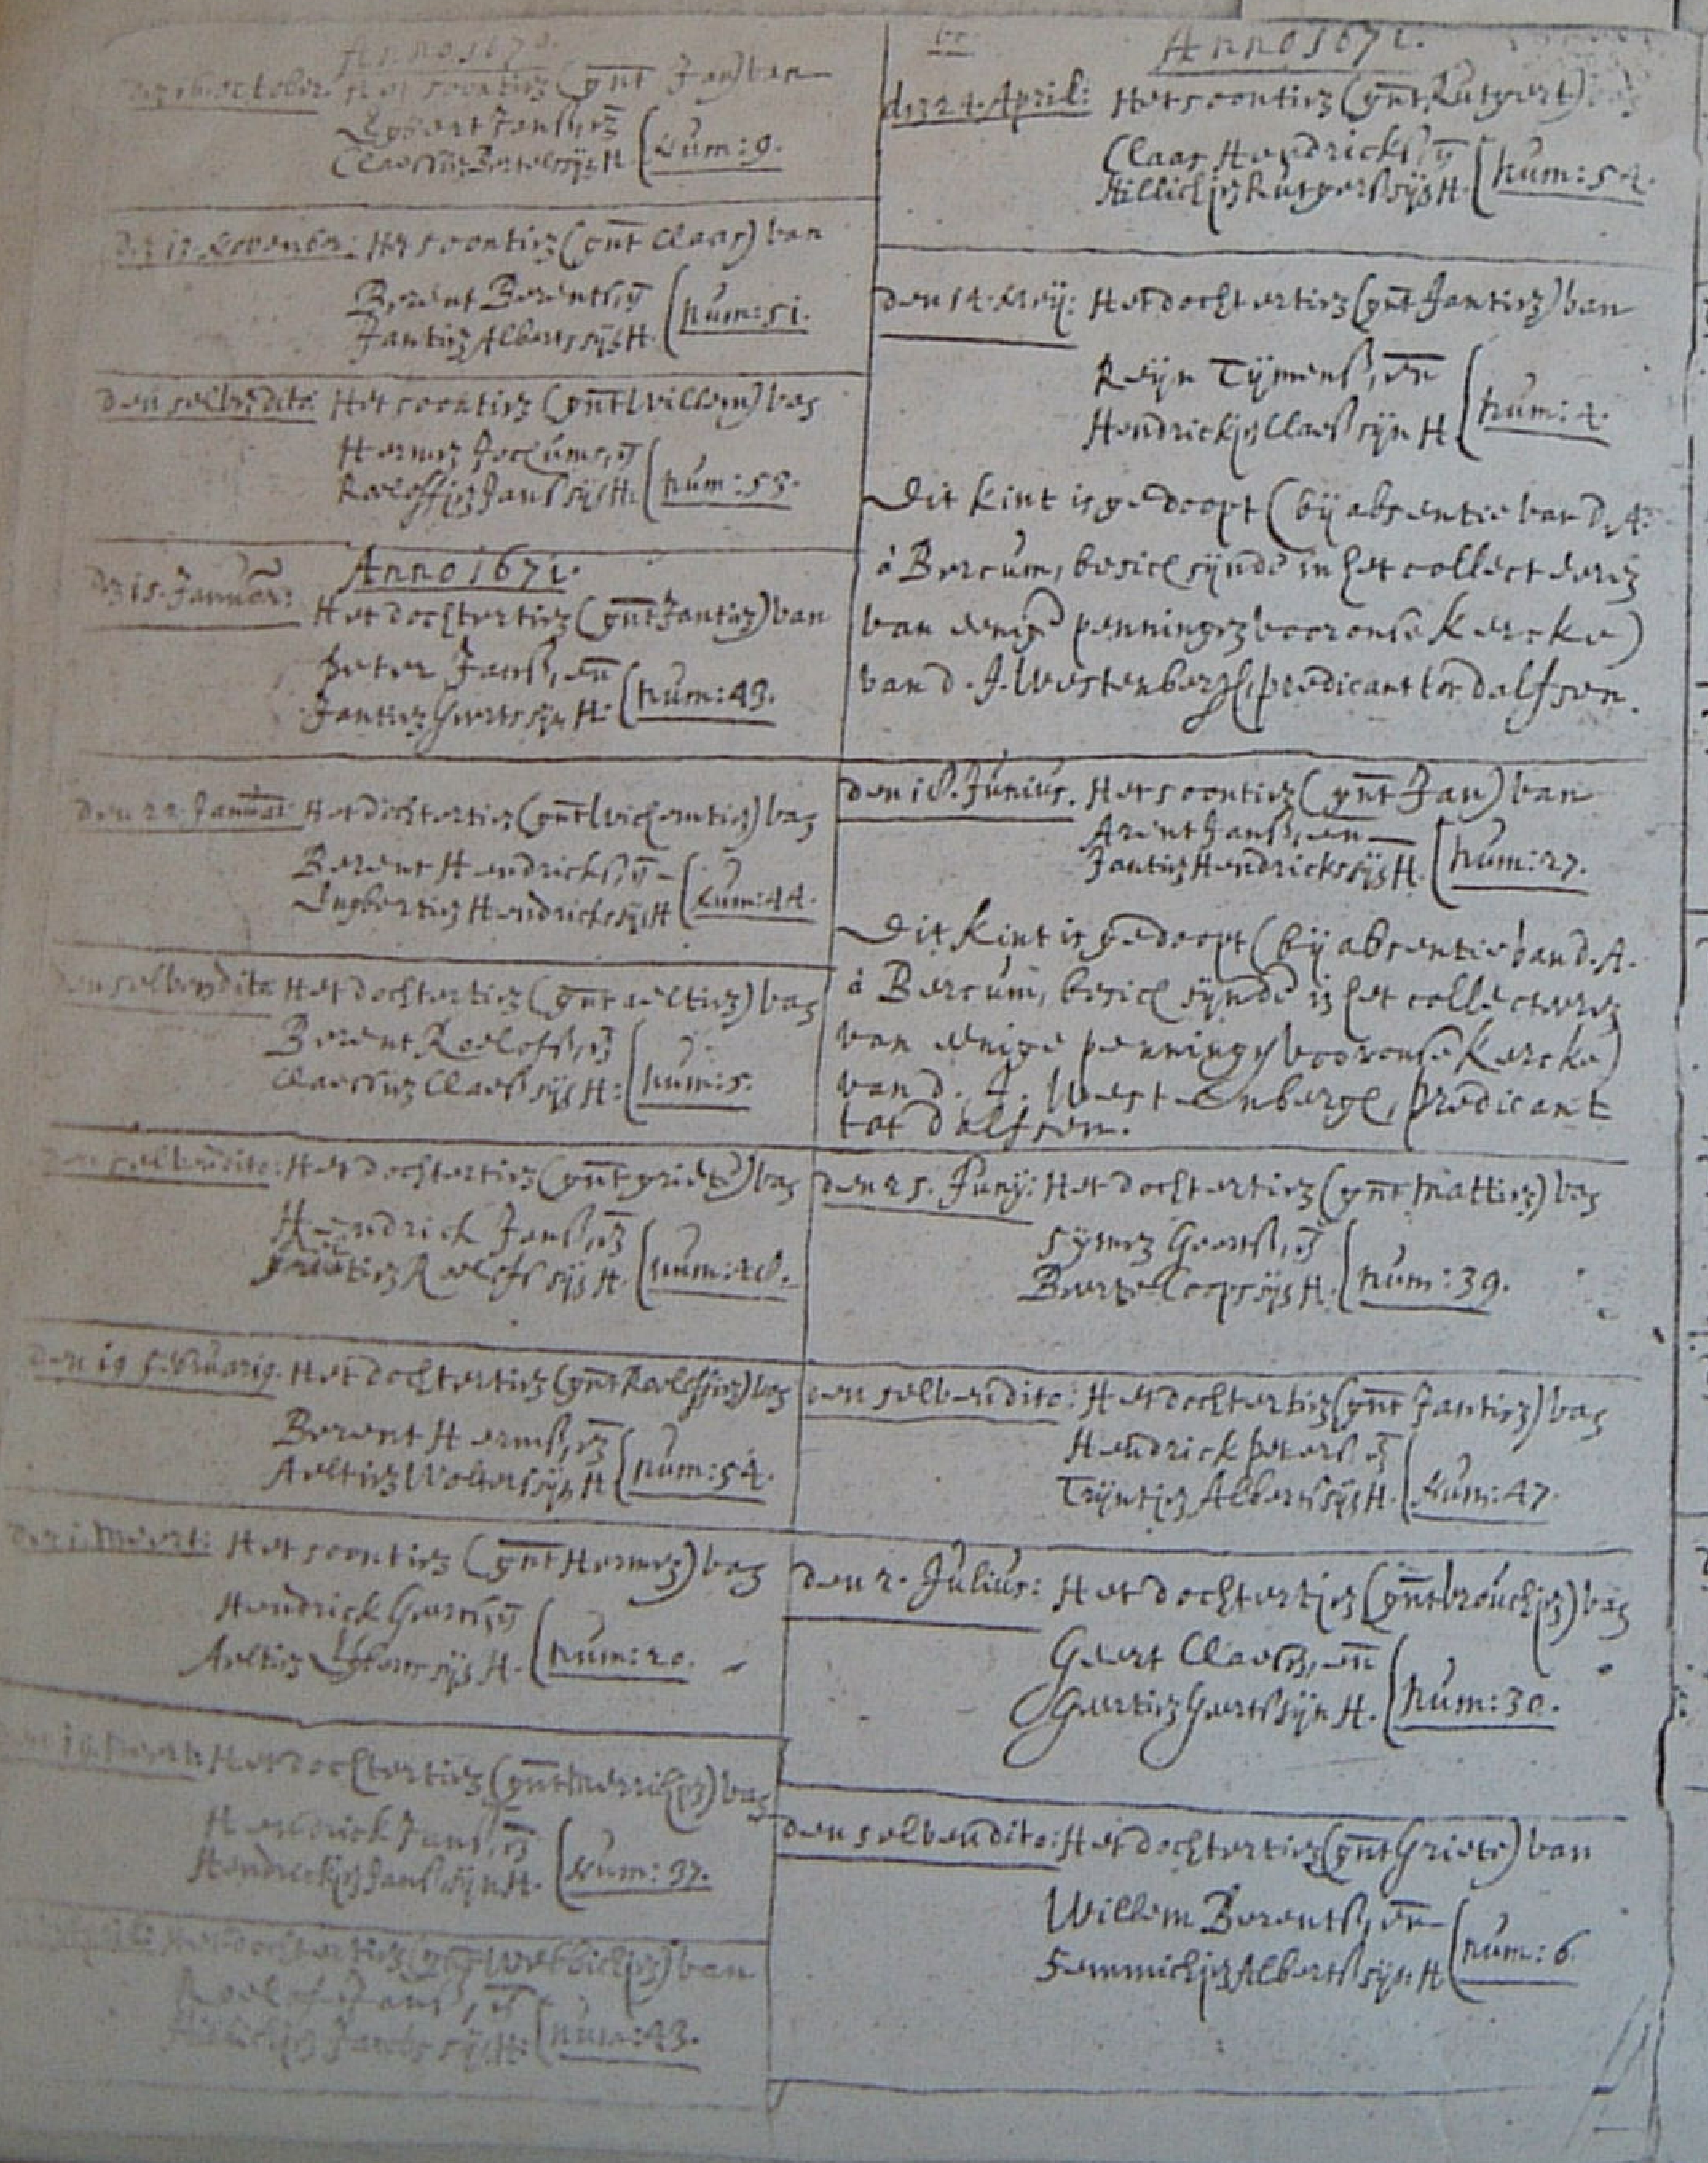 Anno 1670.
den 16. October. Het soontien (gnt Jan) van
Egbert Janss, en
Claessien Bartels sijn H. (Num: 9.
November: Het soontien (gnt Claas) van
Berent Berents, en
Jantien Alberts sijn H. (Num: 51.
den selven dito Het soontien (gnt Willem) van
Hermen Jochums, en
Roeloffien Janss sijn H. (Num: 53.
Anno 1671.
den 15. Januar: Het dochtertien (gnt Jantien) van
Peter Janss, en
Jantien Geerts sijn H. (Num: 43.
den 22. Januar: Het dochtertien (gnt Wichemtien) van
Berent Hendrickss, en
Engbertien Hendricks sijn H (Num: 44.
den selven dito Het dochtertien (gnt Aeltien) van
Berent Roelofs, en
Claessien Claess sijn H: (Num: 5.
den selven dito: Het dochtertien (gnt Griete) van
Hendrick Janss, en
Roelofs sijn H. (Num: 48.
den 19 Februarij. Het dochtertien (gnt Roeloffien) van
Berent Hermss, en
Aeltien Wolters sijn H (Num: 54.
den Meert: Het soontien (gnt Hermen) van
Hendrick Geerts, en
Aeltien Egberts sijn H. (Num: 20.
den 19. Meert: Het dochtertien (gnt Merrichjen) van
Hendrick Janss, en
Hendrickjen Janss sijn H. (Num: 37.
Het dochtertien (gnt ) van
Roelof Janss, en
Hillichjen Jacobs sijn H. (Num: 43.
Anno 1671.
den 24. April: Het soontien (gnt Rutgert)
Claas Hendrickss, en
Hillichjen Rutgerss sijn H. (Num: 54.
den 14. Meij: Het dochtertien (gnt Jantien) van
Reijn Tijmenss, en
Hendrickjen Claess sijn H (Num: 4.
Dit kint is gedoopt (bij absentie van D. A.
à Bercum, besich sijnde in het collecteren
van enige penningen voor onse Kercke)
van D. J. Westenbergh, predicant tot Dalfsen.
den 18. Junius. Het soontien (gnt Jan) van
Arent Janss, en
Jantien Hendricks sijn H. (Num: 27.
Dit Kint is gedoopt (bij absentie van D. A.
à Bercum, besich sijnde in het collecteren
van enige penningen voor onse Kercke)
van D. J. Westenbergh, predicant
tot Dalfsen.
den 25. Junij: Het dochtertien (gnt Mattien) van
Sijmen Geertss, en
Beerte Coops sijn H. (Num: 39.
den selven dito: Het dochtertien (gnt Jantien) van
Hendrick Peters en
Trijntjen Alberts sijn H. (Num: 47.
den 2. Julius: Het dochtertjen (gnt Vrouchjen) van
Geert Claess, en
Geertien Geerts sijn H. (Num: 30.
den selven dito: Het dochtertien (gnt Griete) van
Willem Berents, en
Femmichjen Alberts sijn H (Num: 6.